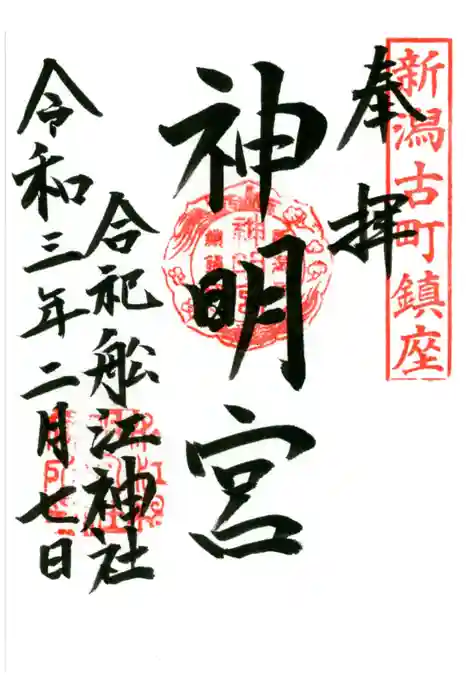 新潟古町鎮座
奉拝
神明宮
合祀舩江神社
令和三年二月七日